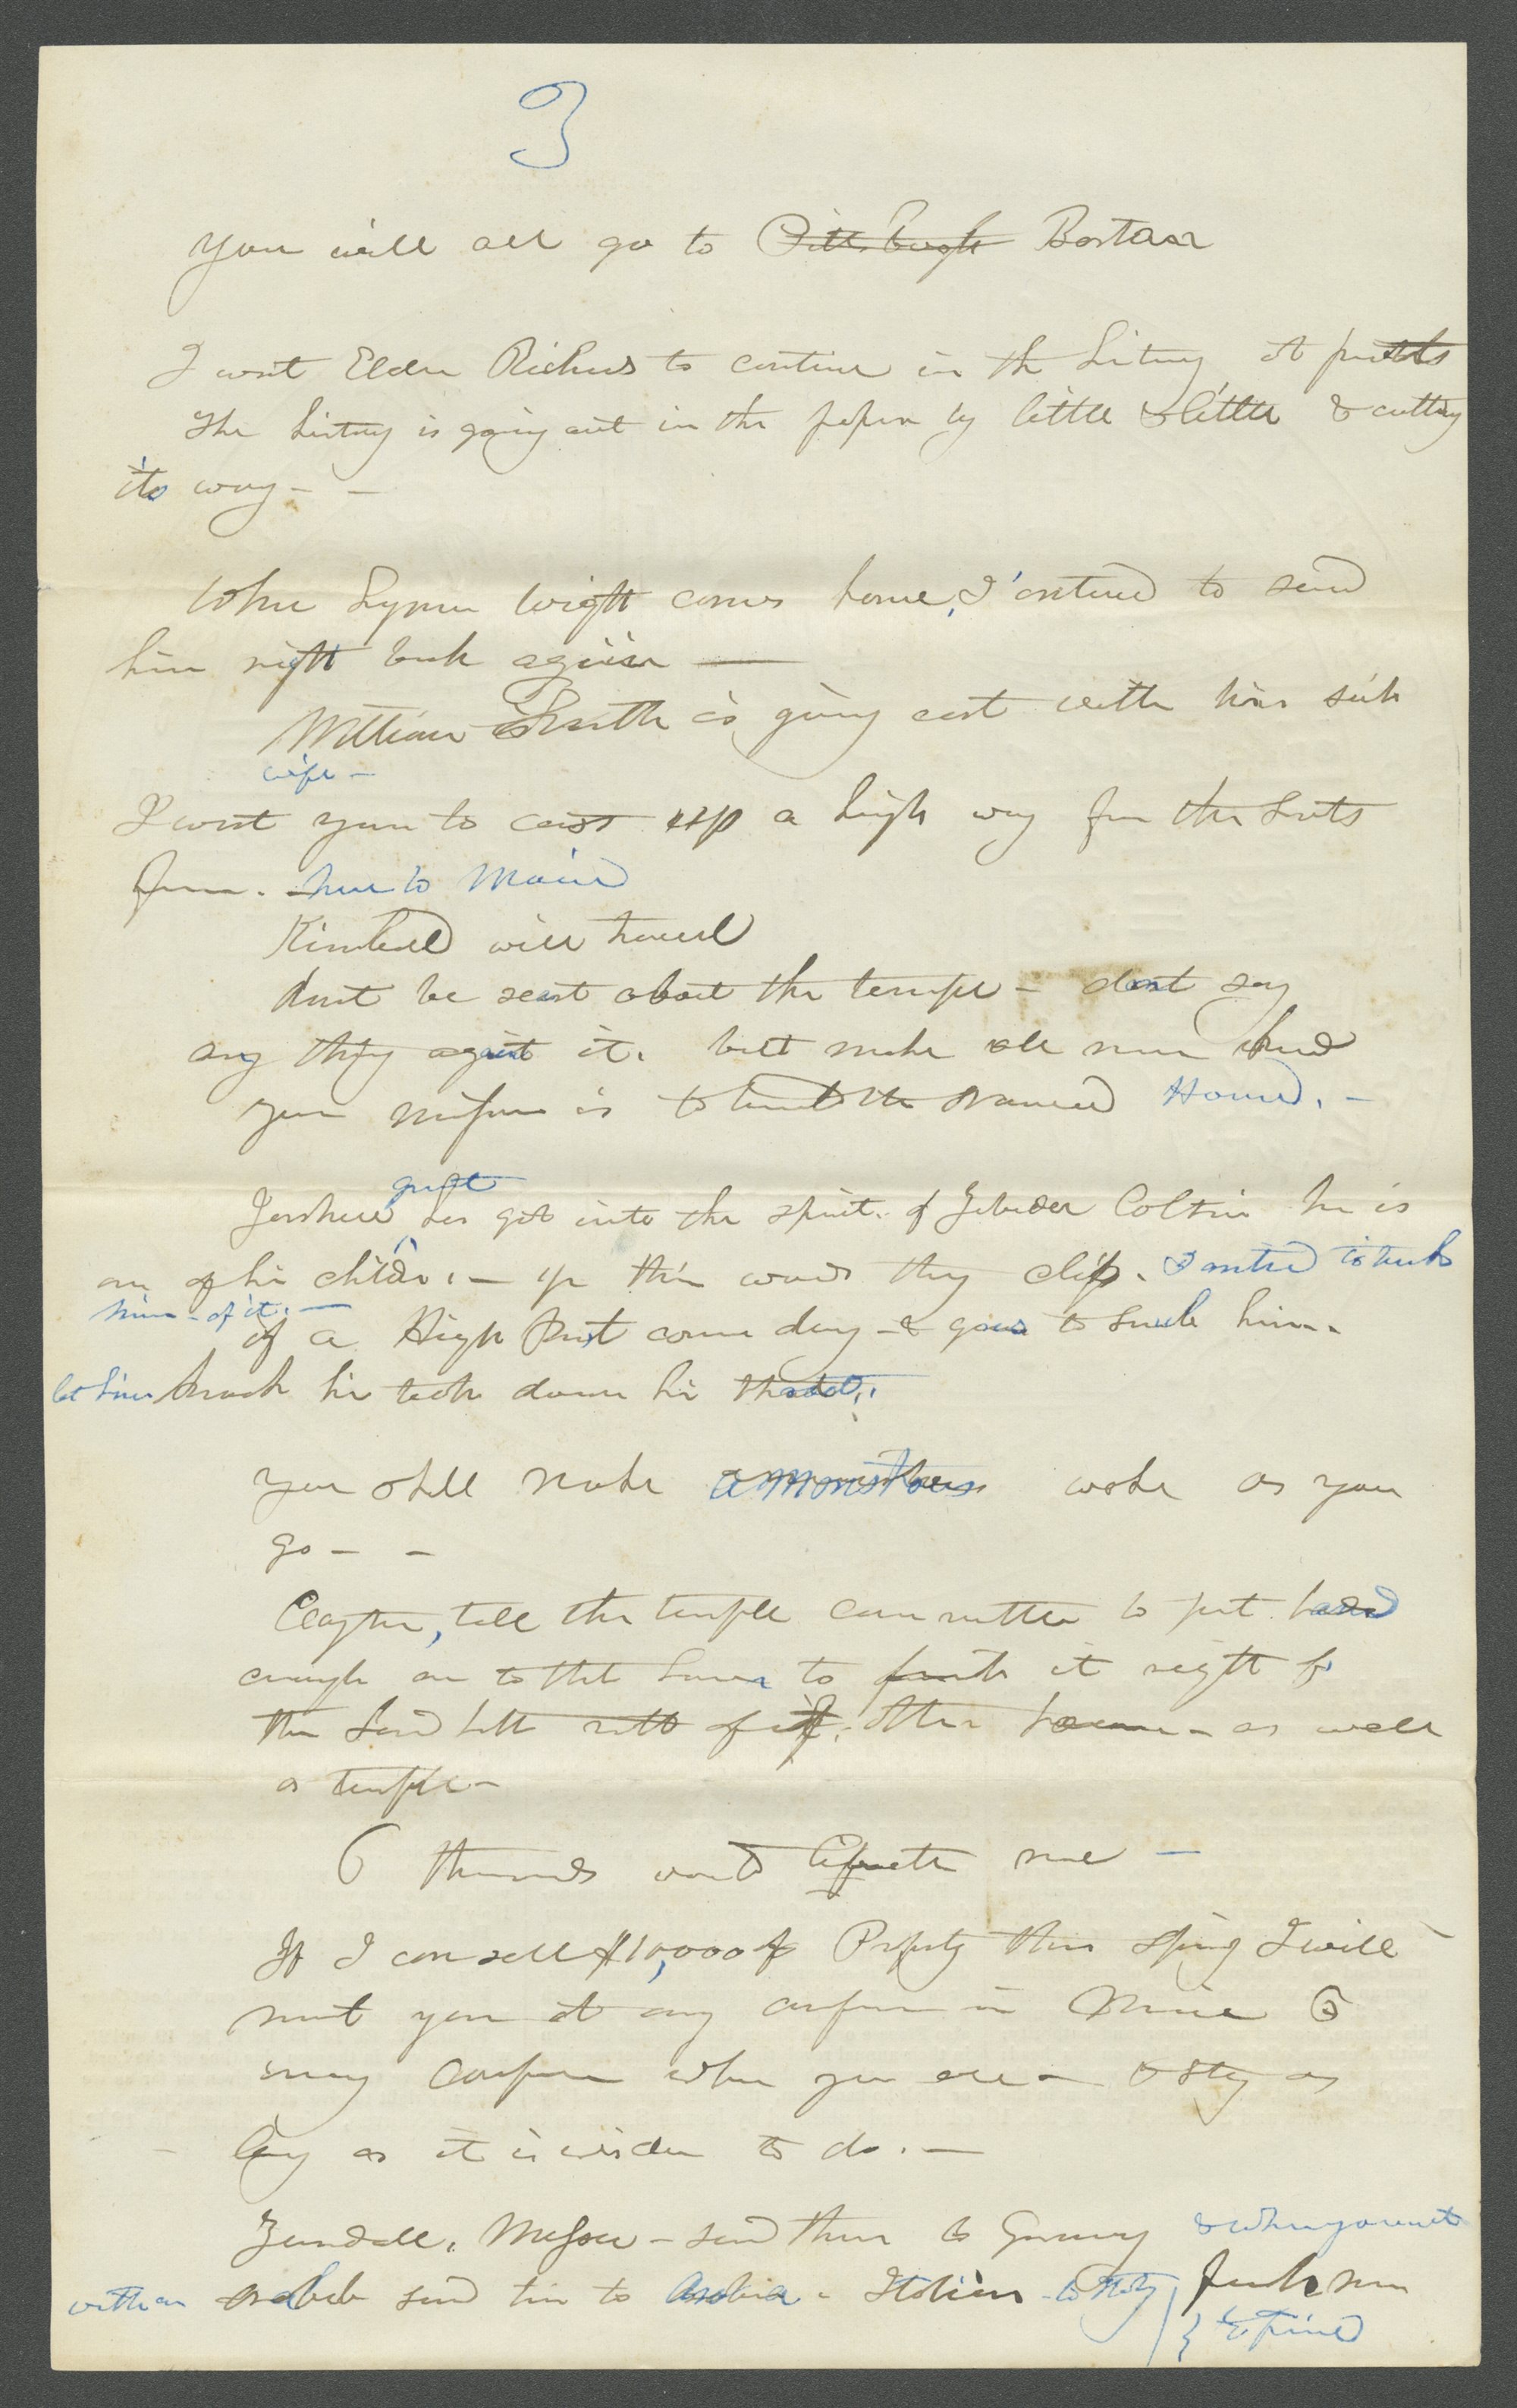 3
You will all go to Pittsburgh Boston
I want Elder Richards to continue in the history at present
The history is going out in the paper by little & little & cutting
its way - -
When Lyman Wight comes home, I intend to send
him right back again —
William Smith is going east with his sick
wife -
I want you to cast up a high way for the Saints
from. here to Maine
Kimball will travel
dont be scart about the temple - dont say
any thing against it. but make all men
your mission is to build the Nauvoo House. -
Joshua grant has got into the spirit of Jebedee Coltrin he is
one of his children. - up this way they clip. I intend to
him - of it. —
if a High Priest comes along - & goes to snub him.
let him knock his teeth down his throat.
You shall make a monstrous wake as you
go - -
Clayton, tell the temple committee to put hands
enough on to that house to finish it right
the Lord hath need of other houses - as well
as temple -
6 thousands would me -
If I can sell $10,000 of Property this Spring I will
meet you at any conference in Maine or
any conference where you are - & stay as
long as it is wisdom to do. -
Zundall, Messer - send them to Germany & when you meet
with an arab send him to Arabia - Italian - to Italy French man
to France